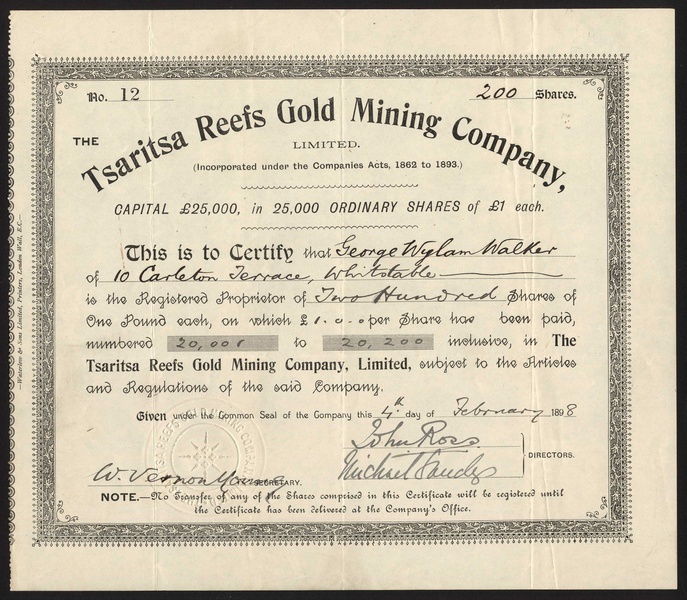 No. 12
200 Shares.
THE
Tsaritsa Reefs Gold Mining Company,
LIMITED.
(Incorporated under the Companies Acts, 1862 to 1893.)
CAPITAL £25,000, in 25,000 ORDINARY SHARES of £1 each.
This is to Certify that George Wylam Walker
of 10 Carleton Terrace, Whitstable
is the Registered Proprietor of Two Hundred Shares of
One Pound each, on which £1.0.0 per Share has been paid,
numbered 20,001 to 20,200 inclusive, in The
Tsaritsa Reefs Gold Mining Company, Limited, subject to the Articles
and Regulations of the said Company.
Given under the Common Seal of the Company this 4th. day of February 1898
John Ross
Michael
DIRECTORS.
W. Vernon Young
SECRETARY.
NOTE.—No Transfer of any of the Shares comprised in this Certificate will be registered until
the Certificate has been delivered at the Company's Office.
—Waterlow & Sons Limited, Printers, London Wall, E.C.—